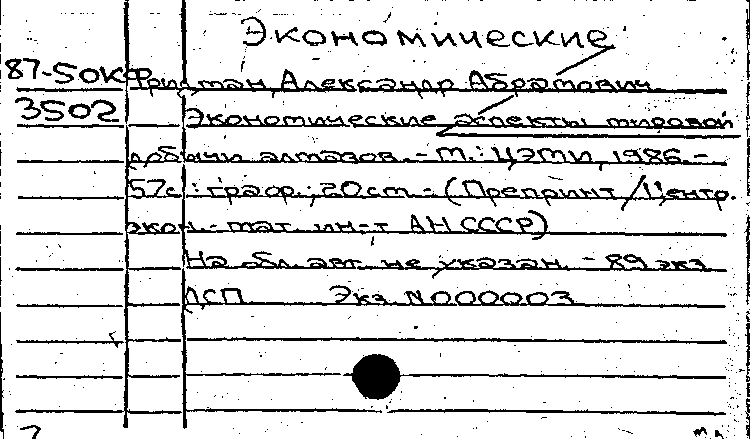 Экономические
87-50К Фридман, Александр Абрамович
3502 Экономические аспекты мировой
добычи алмазов. - М.: ЦЭМИ, 1986. -
57с.: граф.; 20см. - (Препринт / Центр.
экон.-мат. ин-т АН СССР)
На обл. авт. не указан. - 89 экз
ДСП Экз N000003